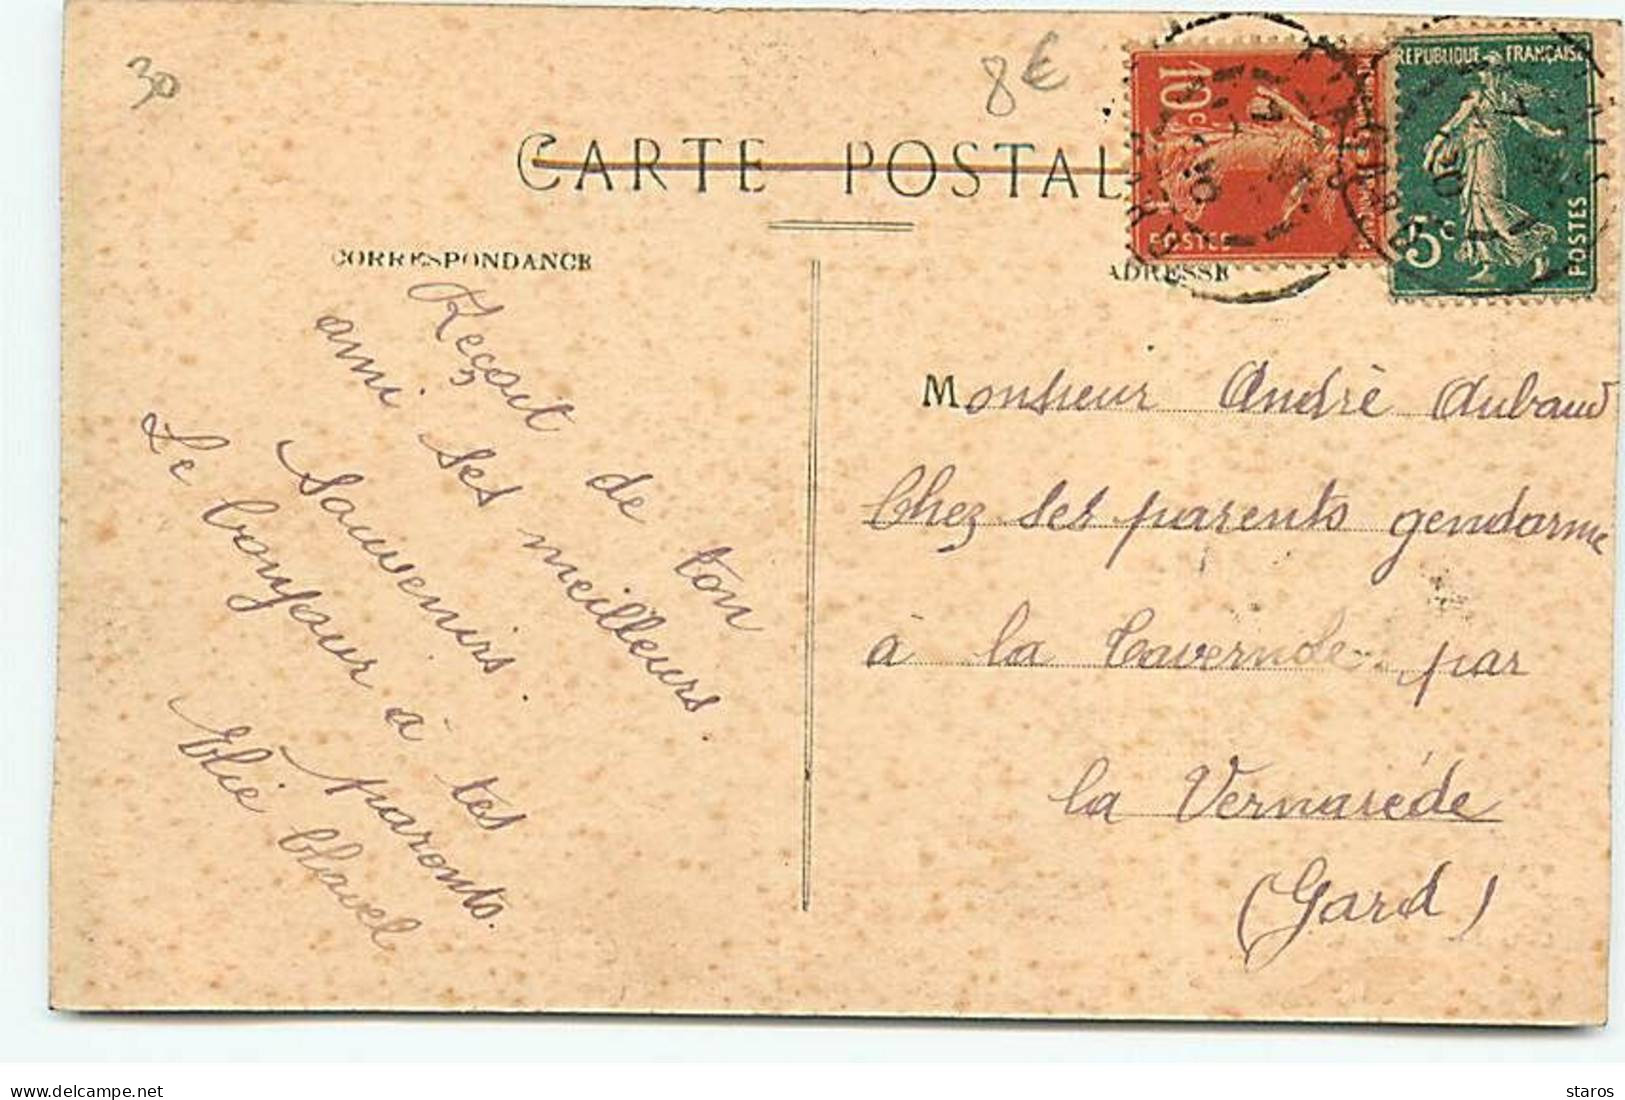 30
8€
CARTE POSTAL
CORRESPONDANCE
ADRESSE
10c
POSTES
REPUBLIQUE FRANÇAISE
5c
POSTES
Reçoit de ton
ami ses meilleurs
Souvenirs.
Le bonjour à tes
parents.
Elie Chavel
Monsieur André Aubaud
Chez ses parents gendarme
à la Tavernole par
la Vernarède
(Gard)
delcampe.net
staros